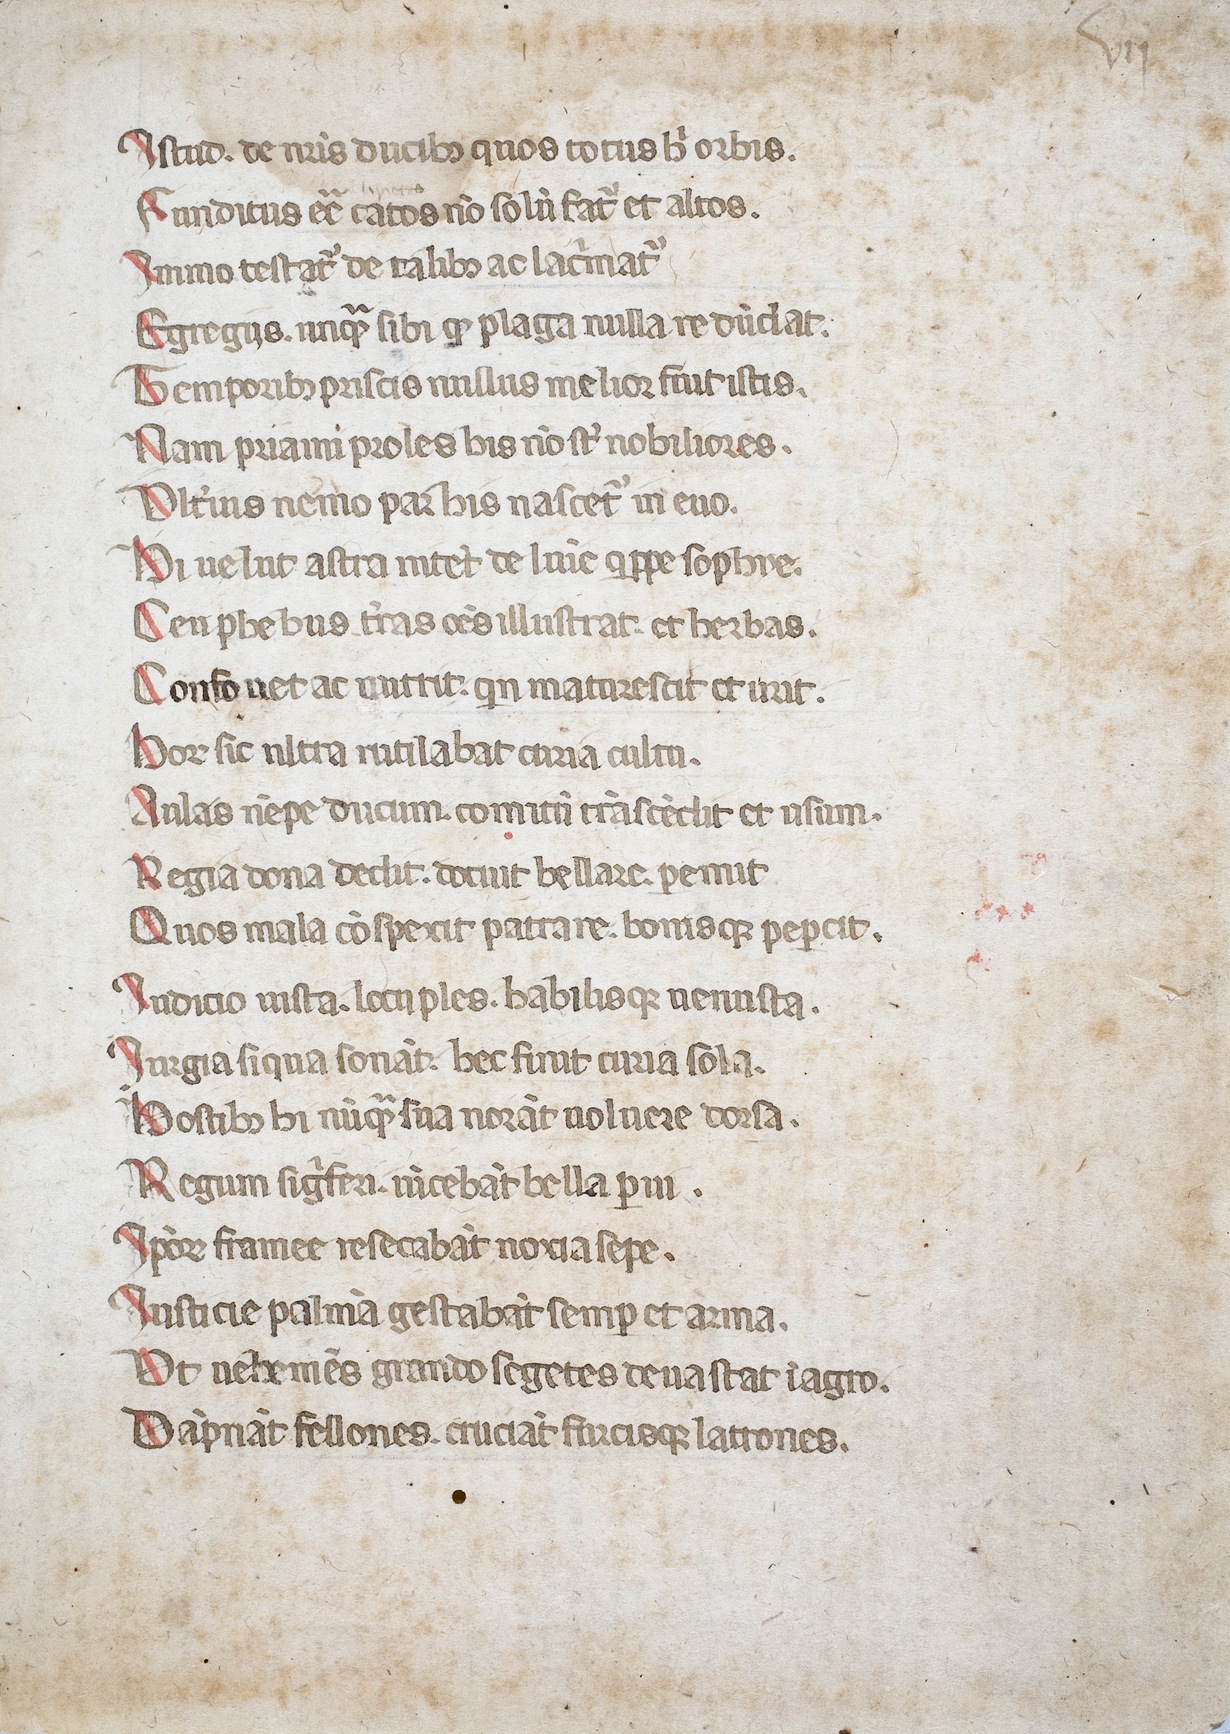 vij
Istud. de nr̄is ducibꝫ quos totus hꝫ orbis.
Funditus eē catos nō solū fat᷑ et altos.
Immo testat᷑ de talibꝫ ac lac̄mat᷑
Egregijs. nūq̄ sibi ꝙ plaga nulla redūdat.
Temporibꝫ priscis nullus melior fuit istis.
Nam priami proles his nō st̄ nobiliores.
Vlt̓ius nemo par his nascet᷑ in euo.
Hi uelut astra nitēt de luīe q̄ppe sophye.
Ceu phebus t̓ras oēs illustrat. et herbas.
Confouet ac nutrit. qn̄ maturescit et urit.
Hoꝝ sic ultra rutilabat curia cultu.
Aulas nēpe ducum. comitū trāscēdit et usum.
Regia dona dedit. docuit bellare. ꝑemit
Quos mala cōspexit patrare. bonisqꝫ peꝑcit.
Iudicio iusta. locuples. habilisqꝫ uenusta.
Iurgia siqua sonāt. hec finit curia sola.
Hostibꝫ hi nūq̄ sua norāt uoluere dorsa.
Regum sig̓feri. uīcebāt bella ꝑui.
Ip̄oꝝ framee resecabāt noxia sepe.
Iusticie palmā gestabāt semꝑ et arma.
Vt uehemēs grando segetes deuastat ī agro.
Dāpnāt fellones. cruciāt furcisqꝫ latrones.